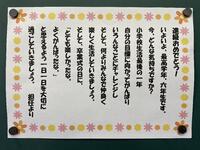 進級おめでとう!
いよいよ、最高学年、六年生です。
今、どんな気持ちですか?
小学校生活最後の一年
自分の目標に向かってがんばり
いろんなことにチャレンジし
そして、何よりみんなで仲良く
楽しく生活していきましょう。
そして、卒業式の日に、
「とても楽しかったな。」
「よくがんばったな。」
と言えるよう一日一日を大切に
過ごしていきましょう。 担任より